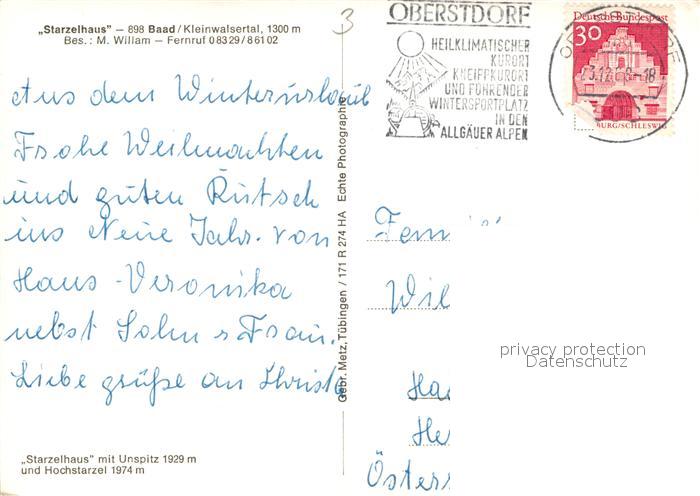 „Starzelhaus" – 898 Baad / Kleinwalsertal, 1300 m
Bes.: M. Willam – Fernruf 08329/86102
3
Aus dem Winterurlaub
Frohe Weihnachten
und guten Rutsch
ins Neue Jahr. von
Hans - Veronika
nebst Sohn & Frau.
Liebe grüße an Christa
„Starzelhaus" mit Unspitz 1929 m
und Hochstarzel 1974 m
Gebr. Metz, Tübingen / 171 R 274 HA Echte Photographie
OBERSTDORF
HEILKLIMATISCHER
KURORT
KNEIPPKURORT
UND FÜHRENDER
WINTERSPORTPLATZ
IN DEN
ALLGÄUER ALPEN
Deutsche Bundespost
30
BURG/SCHLESWIG
Fam
Wil
Ha
He
Österr
privacy protection
Datenschutz